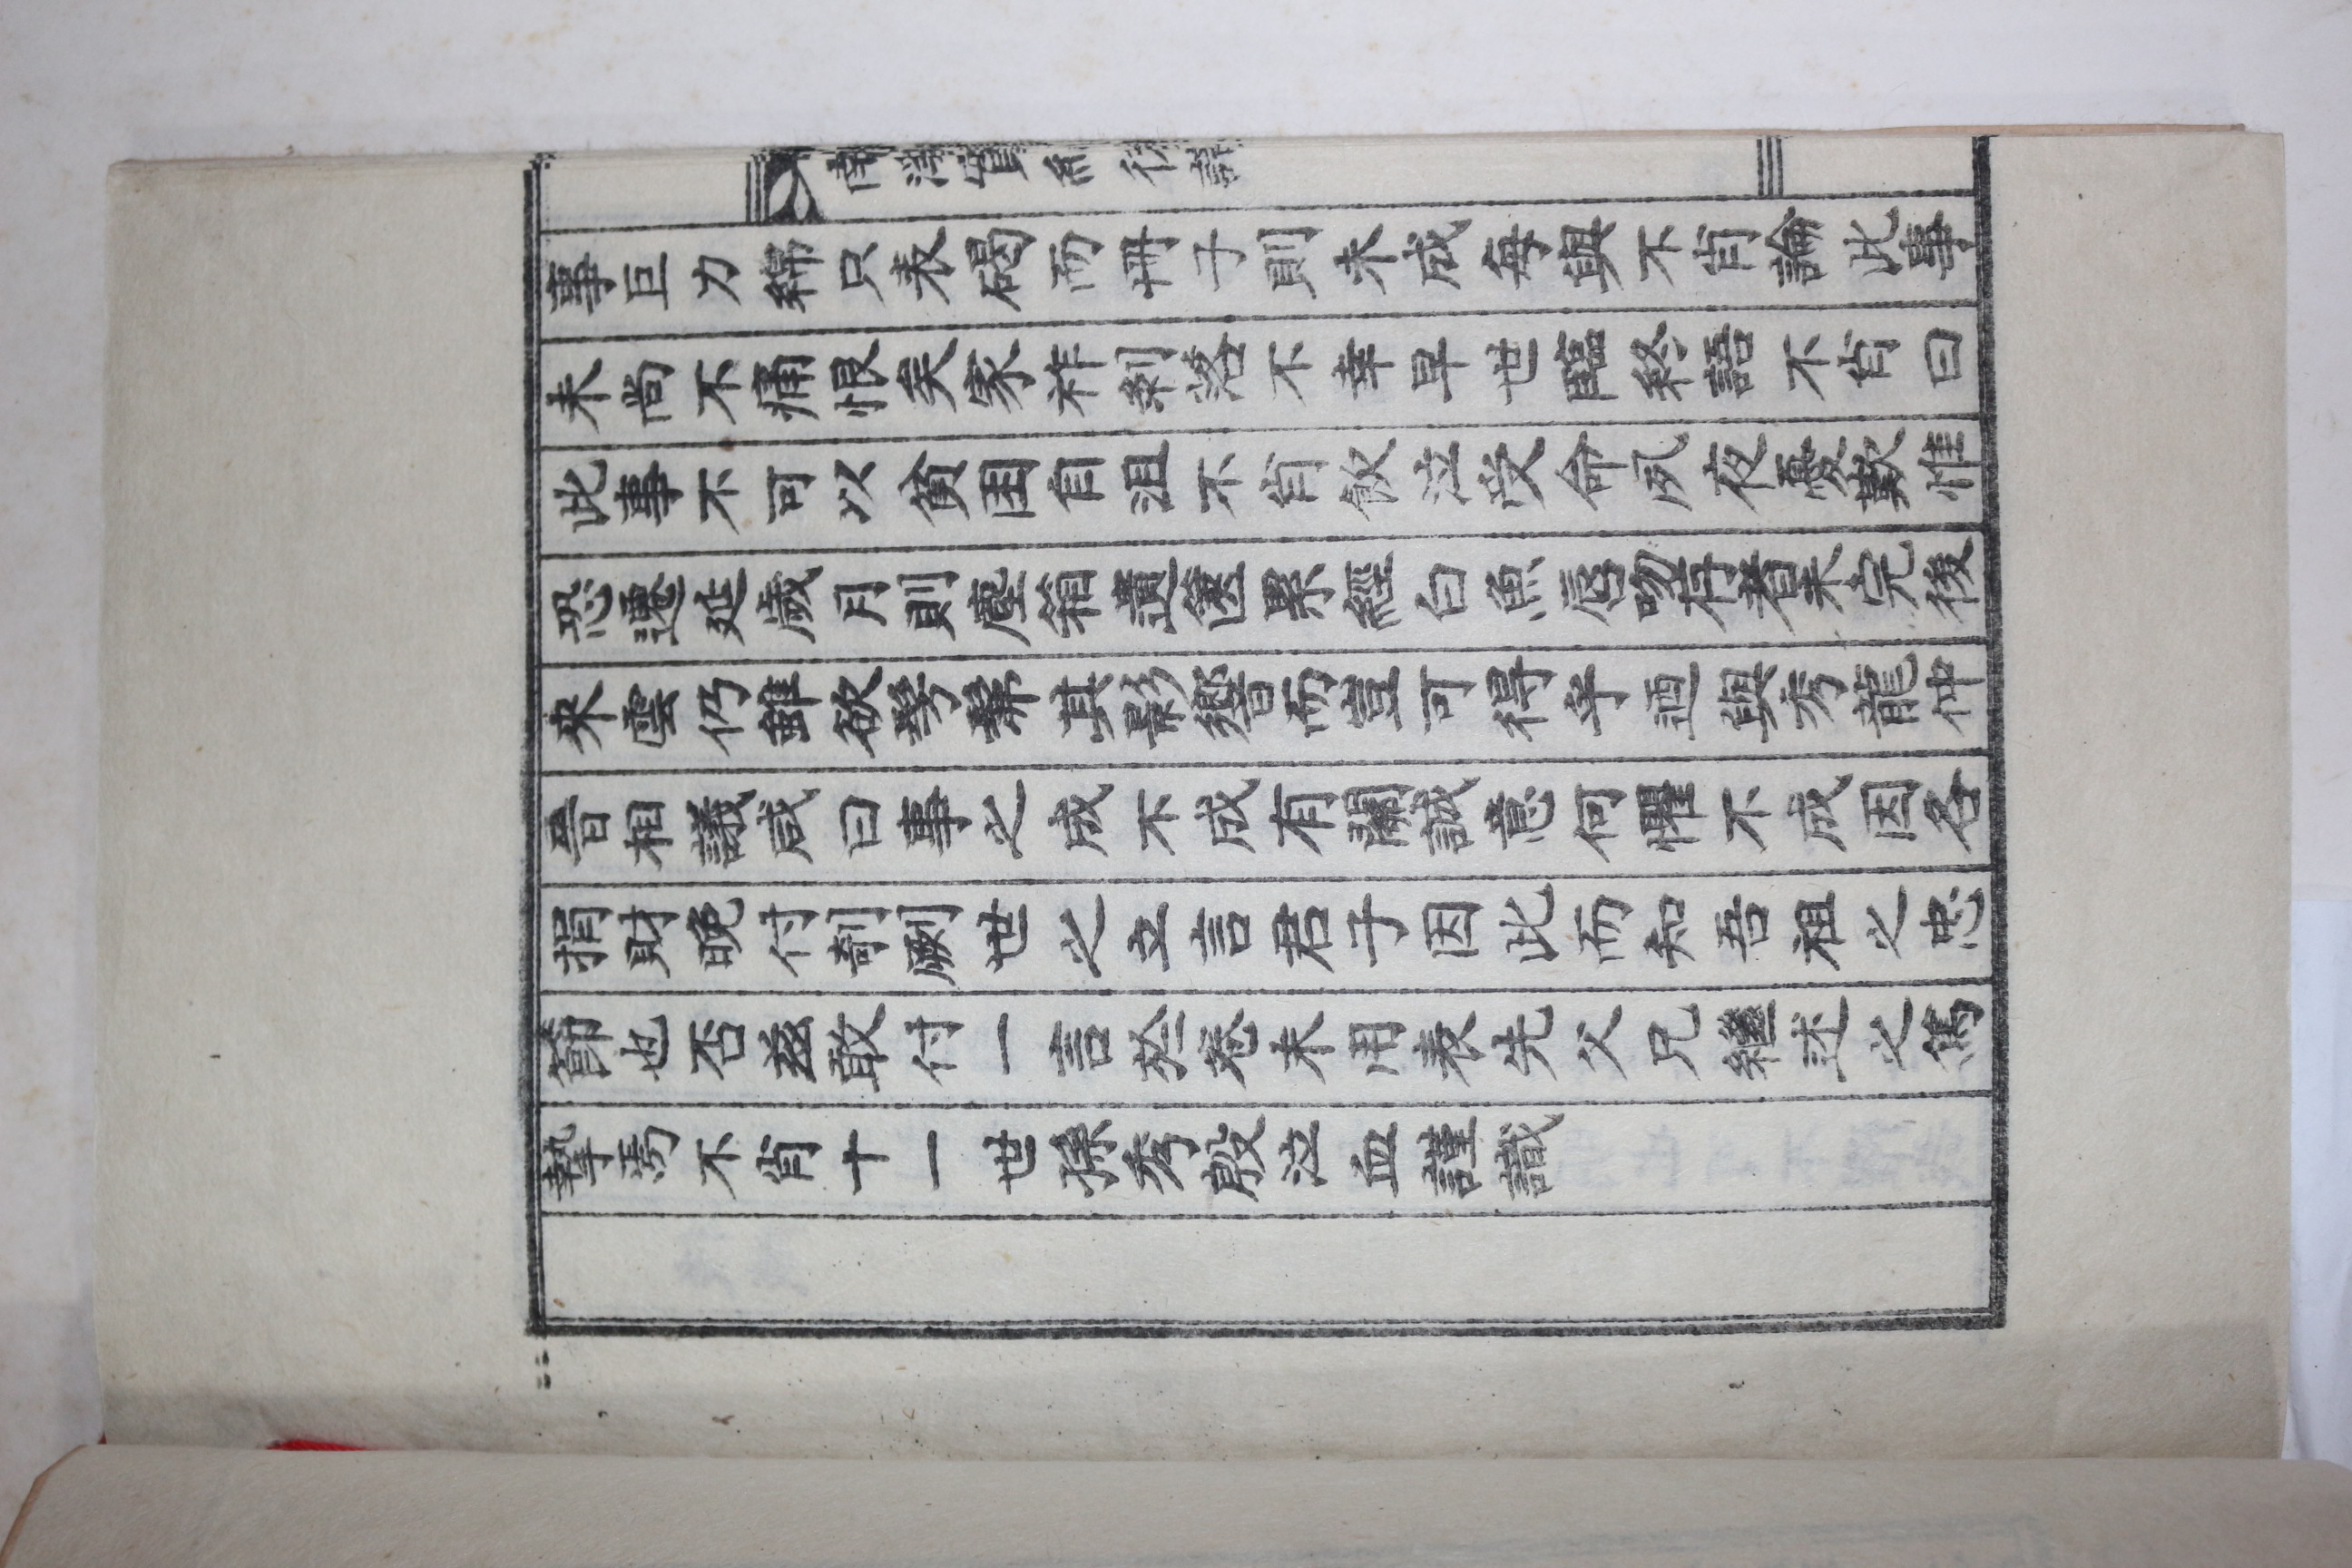 事巨力綿只表碣而冊子則未成每與不肖論此事
未尚不痛恨矣家祚剝落不幸早世臨終語不肖曰
此事不可以貧困自沮不肖飲泣受命夙夜憂歎惟
恐遷延歲月則塵箱遺篋累經白魚唇吻存者未完後
來雲仍雖欲髣髴其影響而豈可得乎迺與秀龍仲
晉相議咸曰事之成不成有關誠意何懼不成因各
捐財晩付剞劂世之立言君子因此而知吾祖之忠
節也否玆敢付一言於卷末用表先父兄繼述之篤
摯焉不肖十一世孫秀殷泣血謹識